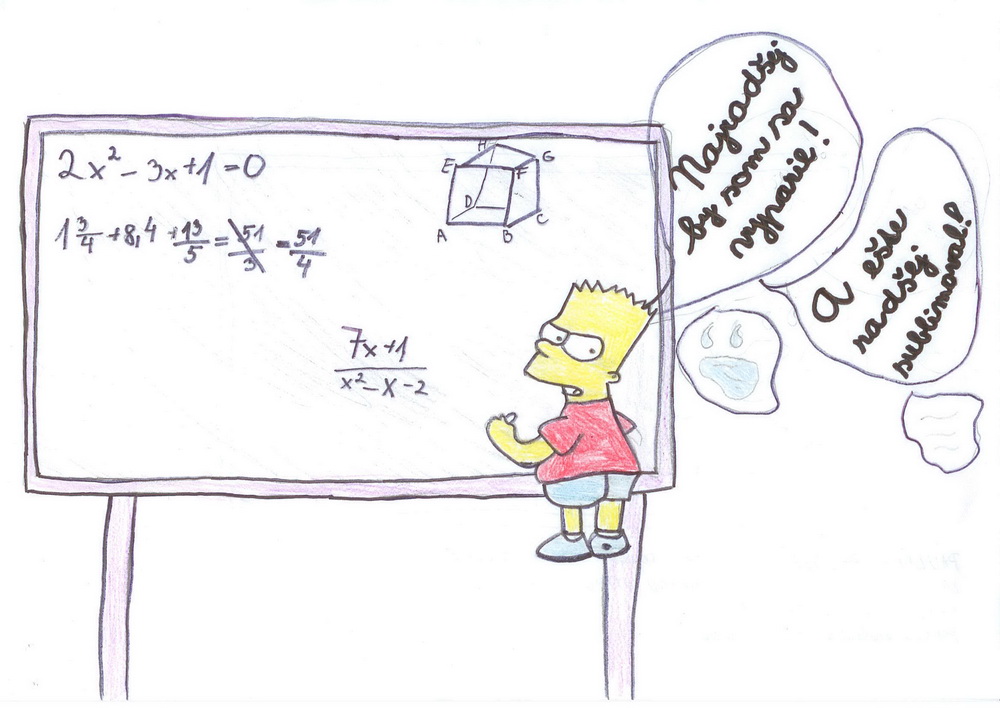 2x² - 3x + 1 = 0
1 3/4 + 8,4 + 13/5 = 51/3 = 51/4
7x + 1 / x² - x - 2
H
E G
F
D
C
A B
Najradšej
by som sa
vyparil!
A ešte
radšej
sublimoval!